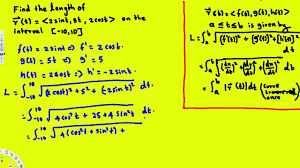 Find the length of
r⃗(t) = <2sint, 5t, 2cost> on the
interval [-10,10]
f(t) = 2sint ⇒ f' = 2cost.
g(t) = 5t ⇒ g' = 5
h(t) = 2cost ⇒ h' = -2sint.
L = ∫₋₁₀¹⁰ √((2cost)² + 5² + (-2sint)²) dt.
= ∫₋₁₀¹⁰ √(4cos²t + 25 + 4sin²t) dt.
= ∫₋₁₀¹⁰ √(4(cos²t + sin²t) +
r⃗(t) = <f(t), g(t), h(t)>
a ≤ t ≤ b is given by
L = ∫ₐᵇ √((f'(t))² + (g'(t))² + [h'(t)]²) dt
= ∫ₐᵇ √((dx/dt)² + (dy/dt)² + (dz/dt)²) dt
= ∫ₐᵇ |r⃗'(t)| dt (curve
traversed
once)